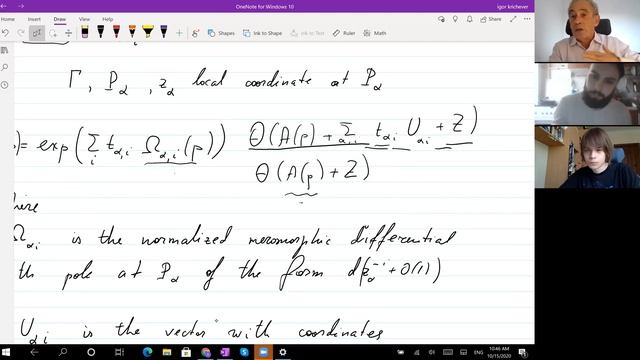 OneNote for Windows 10
igor krichever
Home Insert Draw View Help
Shapes Ink to Shape Ink to Text Ruler Math
Γ, P_α, z_α local coordinate at P_α
)= exp(Σ_i t_{α,i} Ω_{α,i}(p)) θ(A(p) + Σ_{α,i} t_{αi} U_{αi} + Z)
θ(A(p) + Z)
here
Ω_{αi} is the normalized meromorphic differential
th pole at P_α of the form d(z_α^{-i} + O(1))
U_{αi} is the vector with coordinates
10:46 AM
10/15/2020